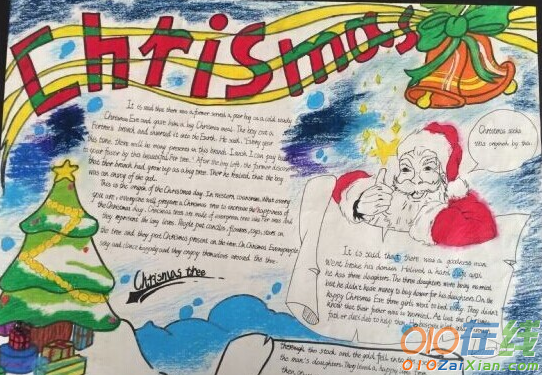 Christmas
It is said that there was a farmer served a poor boy on a cold snowy
Christmas Eve and gave him a big Christmas meal. The boy cut a
branch and inserted it into the Earth. He said, "Every year
this time, there will be many presents in this branch. I wish I can pay back
to your favor by this beautiful tree." After the boy left, the farmer discover
that their branch had grown up as a big tree. Then he realised, that the boy
was an envoy of the god.
This is the origin of the Christmas day. In western countries, what every
you are, everyone will prepare a Christmas tree to increase the happiness of
the Christmas day. Christmas tree are made of evergreen tree like
they represent the long lives. People put candles, flowers, toys, stars on
the tree and they put Christmas present on the tree. On Christmas Eve, people
sing and dance happily and they enjoy themselves around the tree.
Christmas tree
Christmas socks
was originate by this.
It is said that there was a goodness man
went broke his domain. He lived a hard life with
he has three daughters. The three daughters were being married,
but he didn't have money to buy dower for his daughters. On the
happy Christmas Eve three girls went to bed early. They didn't
know that their father was so worried. At last the Christmas
father decided to help them.
through the stack, and the gold fell into
the man's daughters. They lived a happy life from
then on...
010在线
010ZaiXian.com